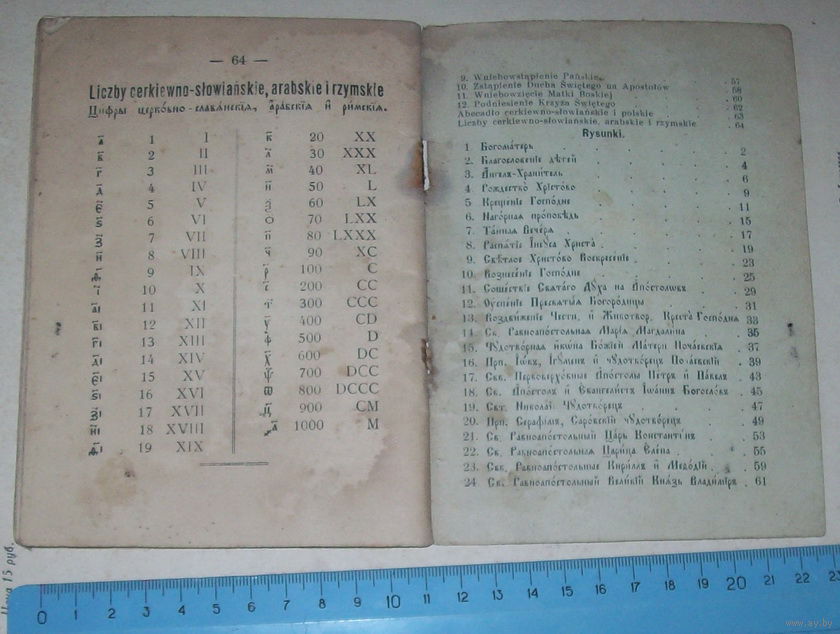 — 64 —
Liczby cerkiewno-słowiańskie, arabskie i rzymskie
Цифры церко́вно-славѧ́нскіѧ, а҆ра́бскіѧ и҆ ри́мскіѧ.
а҃ 1 I
в҃ 2 II
г҃ 3 III
д҃ 4 IV
є҃ 5 V
ѕ҃ 6 VI
з҃ 7 VII
и҃ 8 VIII
ѳ҃ 9 IX
і҃ 10 X
а҃і 11 XI
в҃і 12 XII
г҃і 13 XIII
д҃і 14 XIV
є҃і 15 XV
ѕ҃і 16 XVI
з҃і 17 XVII
и҃і 18 XVIII
ѳ҃і 19 XIX
к҃ 20 XX
л҃ 30 XXX
м҃ 40 XL
н҃ 50 L
ѯ҃ 60 LX
о҃ 70 LXX
п҃ 80 LXXX
ч҃ 90 XC
р҃ 100 C
с҃ 200 CC
т҃ 300 CCC
у҃ 400 CD
ф҃ 500 D
х҃ 600 DC
ѱ҃ 700 DCC
ѿ 800 DCCC
ц҃ 900 CM
҂а҃ 1000 M
9. Wniebowstąpienie Pańskie . 57
10. Zstąpienie Ducha Świętego na Apostołów . 58
11. Wniebowzięcie Matki Boskiej . 60
12. Podniesienie Krzyża Świętego . 62
Abecadło cerkiewno-słowiańskie i polskie . 63
Liczby cerkiewno-słowiańskie, arabskie i rzymskie . 64
Rysunki.
1. Богоматерь . 2
2. Благословеніе дѣтей . 4
3. Ангелъ-Хранитель . 6
4. Рождество Христово . 9
5 Крещеніе Господне . 11
6. Нагорная проповѣдь . 15
7. Тайная Вечеря . 17
8. Распѧтіе Іисуса Христа . 19
9. Свѣтлое Христово Воскресеніе . 23
10. Вознесеніе Господне . 25
11. Сошествіе Святаго Духа на Апостоловъ . 29
12. Успеніе Пресвятыя Богородицы . 31
13. Воздвиженіе Честн. и Животвор. Креста Господня 33
14. Св. Равноапостольная Марія Магдалина . 35
15. Чудотворная икона Божіей Матери Почаевскія . 37
16. Прп. Іовъ, Игуменъ и чудотворецъ Почаевскій . 39
17. Свв. Первоверховные Апостолы Петръ и Павелъ . 43
18. Св. Апостолъ и Евангелистъ Іоаннъ Богословъ . 45
19. Свт. Николай Чудотворецъ . 47
20. Прп. Серафимъ, Саровскій чудотворецъ . 49
21. Св. Равноапостольный Царь Константинъ . 53
22. Св. Равноапостольная Царица Елена . 55
23. Свв. Равноапостольные Кириллъ и Меѳодій . 59
24 Св. Равноапостольный Великій Князь Владиміръ . 61
Цѣна 15 руб.
0 1 2 3 4 5 6 7 8 9 10 11 12 13 14 15 16 17 18 19 20 21 22 23
www.ay.by